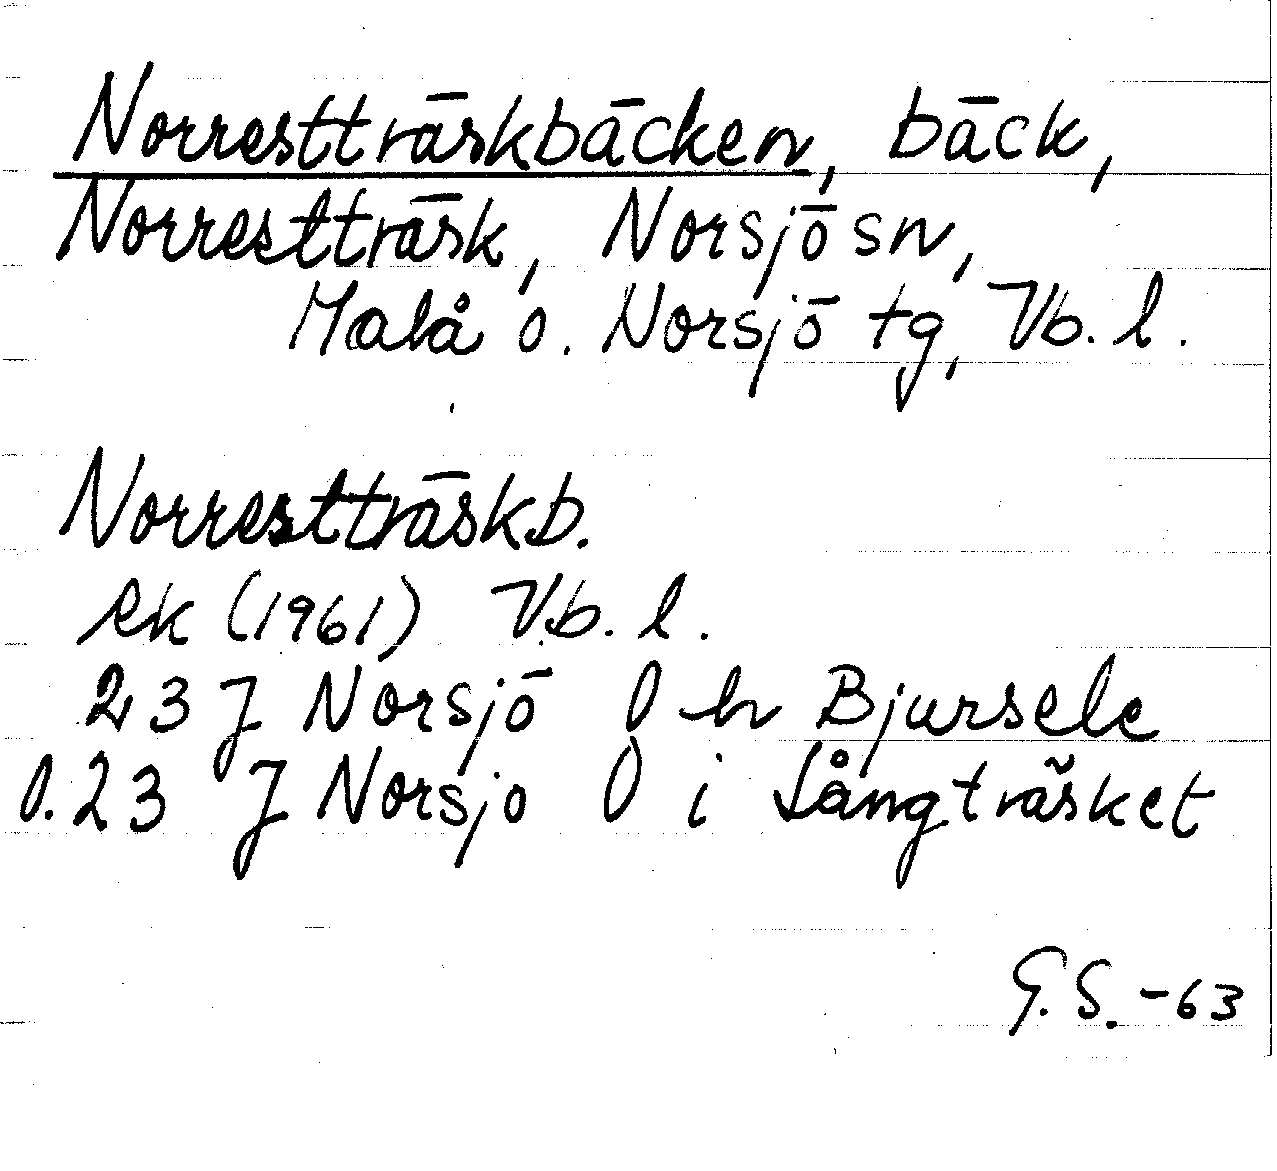 Norrestträskbäcken, bäck,
Norrestträsk, Norsjö sn,
Malå o. Norsjö tg, Vb. l.
Norrestträskb.
Rk (1961) Vb. l.
23 J Norsjö l h Bjursele
o. 23 J Norsjo l i Långträsket
G.S. -63